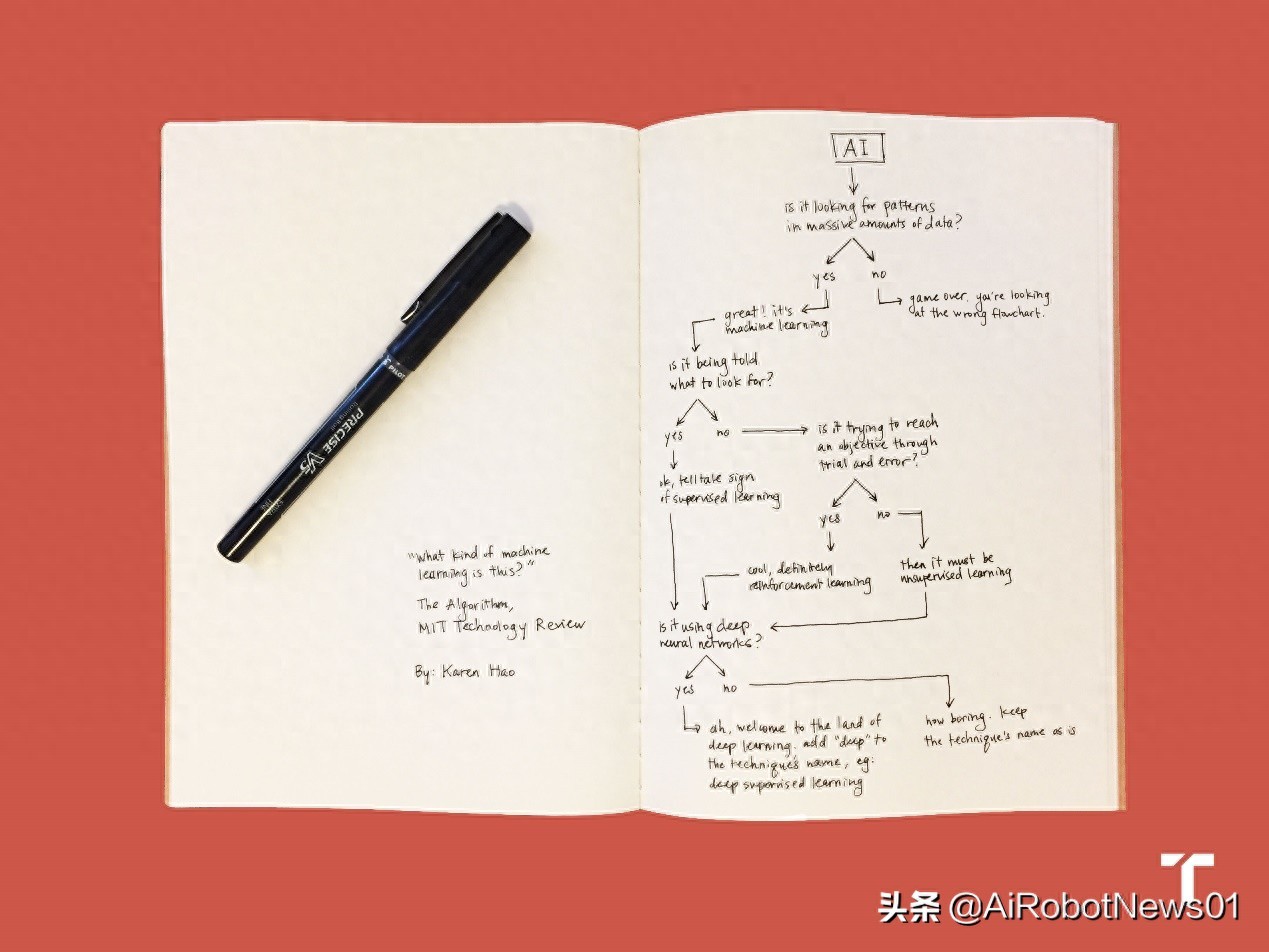 PILOT
PRECISE V5
Rolling Ball
EXTRA
FINE
"What kind of machine
learning is this?"
The Algorithm,
MIT Technology Review
By: Karen Hao
AI
is it looking for patterns
in massive amounts of data?
yes
no
great! it's
machine learning
game over. you're looking
at the wrong flowchart.
is it being told
what to look for?
yes
no
is it trying to reach
an objective through
trial and error?
ok, telltale sign
of supervised learning
yes
no
cool, definitely
reinforcement learning
then it must be
unsupervised learning
is it using deep
neural networks?
yes
no
ah, welcome to the land of
deep learning. add "deep" to
the technique's name, eg:
deep supervised learning
how boring. keep
the technique's name as is
头条 @AiRobotNews01